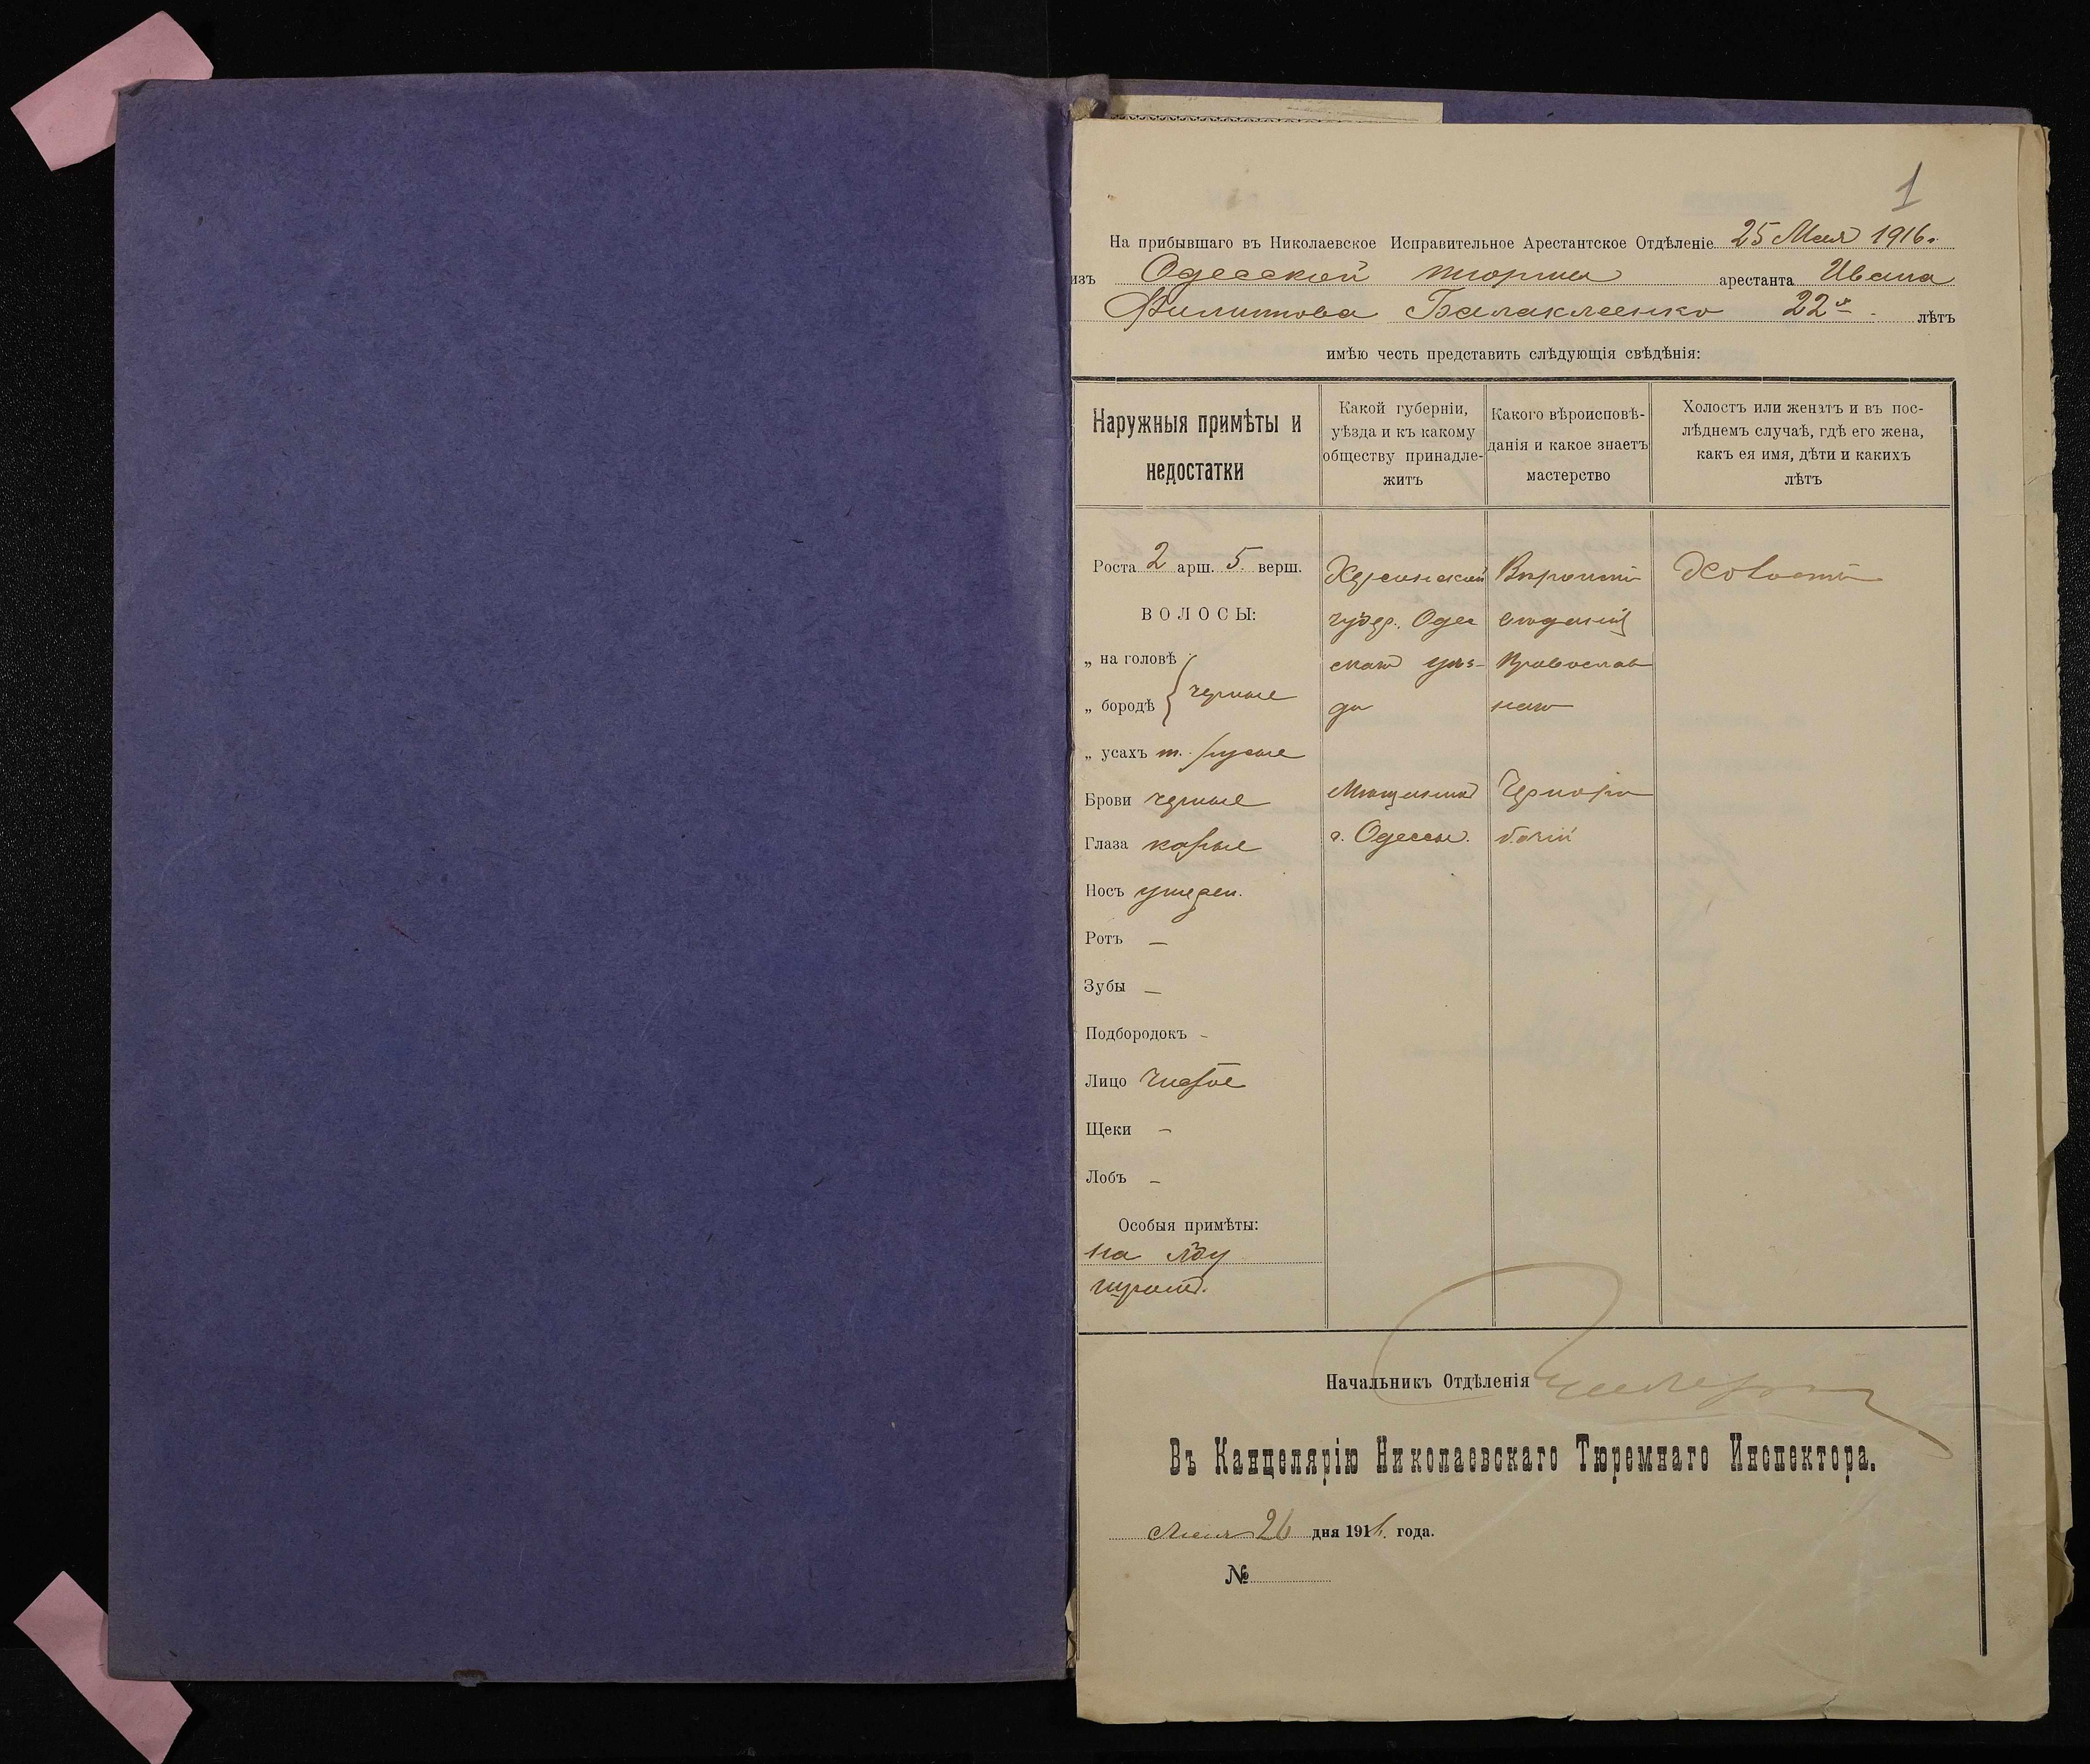 1
На прибывшаго въ Николаевское Исправительное Арестантское Отдѣленіе 25 Мая 1916 г.
изъ Одесской тюрмы арестанта Ивана
Филиппова Балаклеенко 22х лѣтъ
имѣю честь представить слѣдующія свѣдѣнія:
Наружныя примѣты и
недостатки
Какой губерніи,
уѣзда и къ какому
обществу принадле-
житъ
Какого вѣроисповѣ-
данія и какое знаетъ
мастерство
Холостъ или женатъ и въ пос-
лѣднемъ случаѣ, гдѣ его жена,
какъ ея имя, дѣти и какихъ
лѣтъ
Роста 2 арш. 5 верш.
ВОЛОСЫ:
„ на головѣ
„ бородѣ
черные
„ усахъ т. русые
Брови черные
Глаза карые
Носъ умерен.
Ротъ —
Зубы —
Подбородокъ -
Лицо чистое
Щеки -
Лобъ -
Особыя примѣты:
на лбу
шрамъ.
Херсонской
губер. Одес
скаго уѣз-
да
Мѣщанинъ
г. Одессы.
Вѣроиспо
вѣданія
Православ
наго
Чернора
бочій
Холостъ
Начальникъ Отдѣленія
Въ Канцелярію Николаевскаго Тюремнаго Инспектора.
Мая 26 дня 1916 года.
№